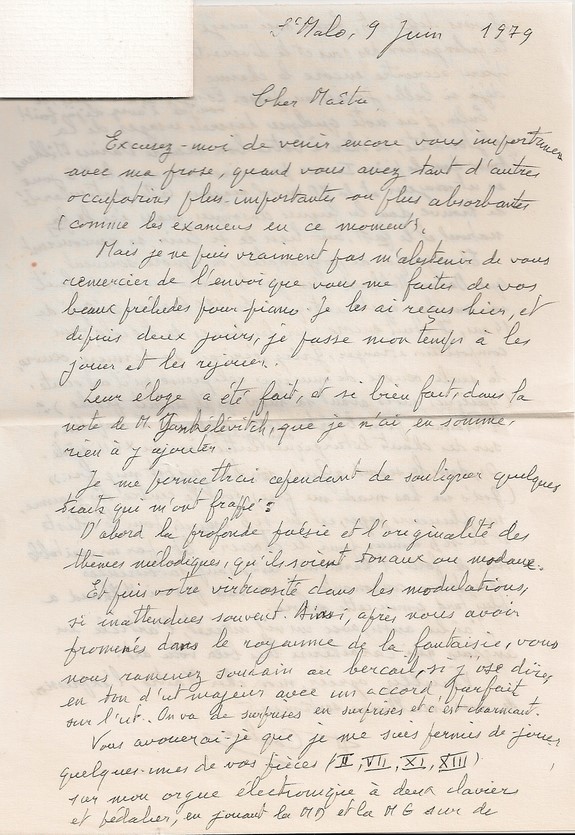 St Malo, 9 Juin 1979
Cher Maître
Excusez-moi de venir encore vous importuner
avec ma prose, quand vous avez tant d'autres
occupations plus importantes ou plus absorbantes
(comme les examens en ce moment).
Mais je ne puis vraiment pas m'abstenir de vous
remercier de l'envoi que vous me faites de vos
beaux préludes pour piano. Je les ai reçus hier, et
depuis deux jours, je passe mon temps à les
jouer et les rejouer.
Leur éloge a été fait, et si bien fait, dans la
note de M. Yankélévitch, que je n'ai, en somme,
rien à y ajouter.
Je me permettrai cependant de souligner quelques
traits qui m'ont frappé :
D'abord la profonde poésie et l'originalité des
thèmes mélodiques, qu'ils soient tonaux ou modaux.
Et puis votre virtuosité dans les modulations,
si inattendues souvent. Ainsi, après nous avoir
promenés dans le royaume de la fantaisie, vous
nous ramenez soudain au bercail, si j'ose dire,
en ton d'ut majeur avec un accord parfait
sur l'ut. On va de surprises en surprises et c'est charmant.
Vous avouerai-je que je me suis permis de jouer
quelques-unes de vos pièces (II, VII, XI, XIII)
sur mon orgue électronique à deux claviers
et pédalier, en jouant la MD et la MG sur de